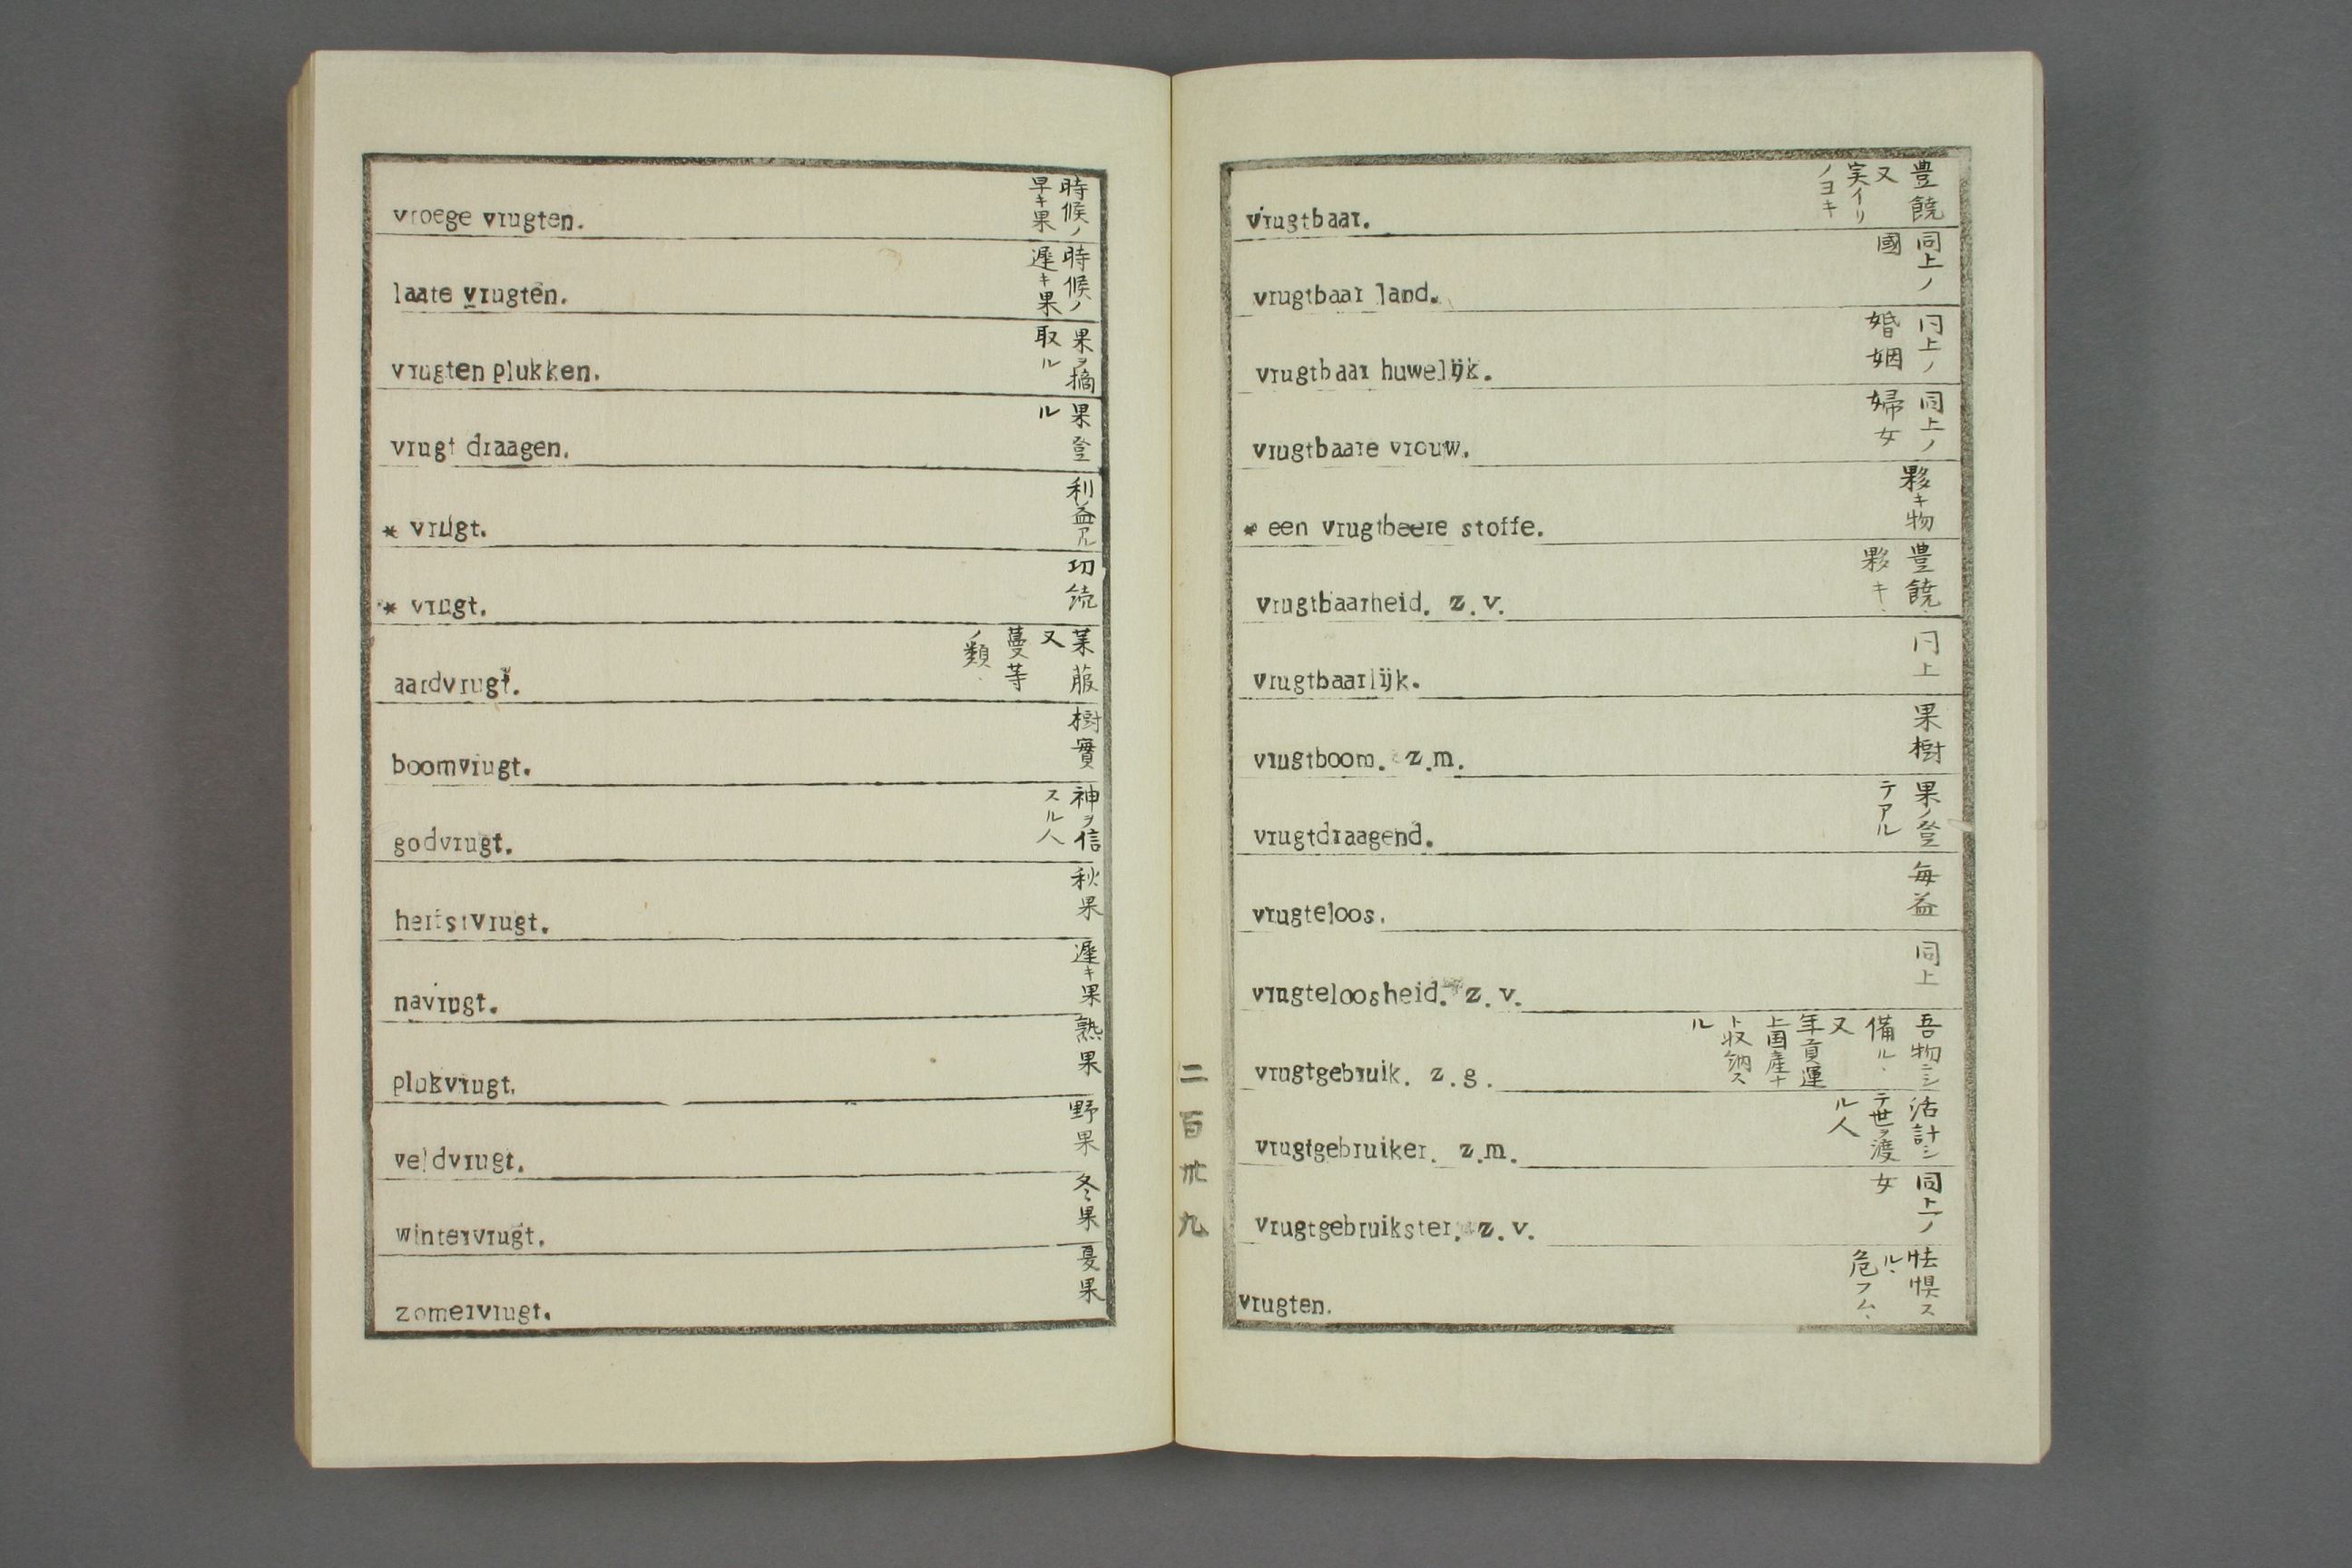 vroege vrugten.
時候ノ
早キ果
laate vrugten.
時候ノ
遅キ果
vrugten plukken.
果ヲ摘
取ル
vrugt draagen.
果登
ル
* vrugt.
利益アル
* vrugt.
功
aardvrugt.
菔
又
蔓菁
ノ類
boomvrugt.
樹實
godvrugt.
神ヲ信
スル人
herfstvrugt.
秋果
navrugt.
遅キ果
plukvrugt.
熟果
veldvrugt.
野果
wintervrugt.
冬果
zomervrugt.
夏果
vrugtbaar.
豊饒
又
実イリ
ノヨキ
vrugtbaar land.
同上ノ
國
vrugtbaar huwelijk.
仝上ノ
婚姻
vrugtbaare vrouw.
同上ノ
婦女
* een vrugtbeere stoffe.
夥キ物
vrugtbaarheid. z.v.
豊饒
夥キ
vrugtbaarlijk.
仝上
vrugtboom. z.m.
果樹
vrugtdraagend.
果ノ登
テアル
vrugteloos.
毎益
vrugteloosheid. z.v.
同上
vrugtgebruik. z.g.
吾物ニシ
備ル
又
年貢運
上国産ナ
ト収納ス
ル
vrugtgebruiker. z.m.
活計シ
テ世ヲ渡
ル人
vrugtgebruikster. z.v.
同上ノ
女
vrugten.
怯惧ス
ル
危フム
二百卅九